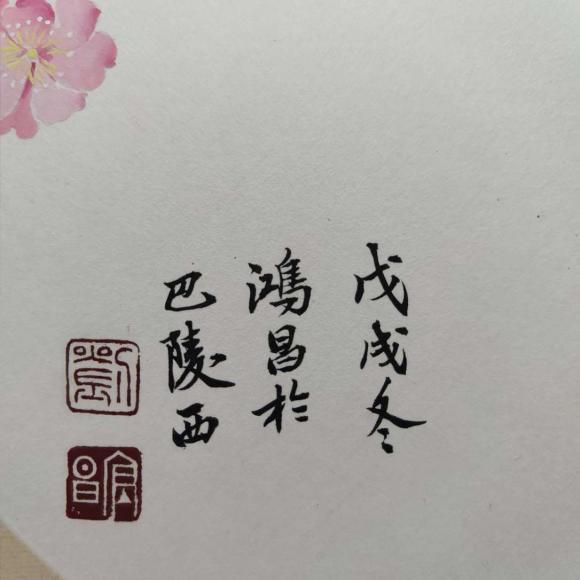 戊戌冬
鴻昌於
巴陵西